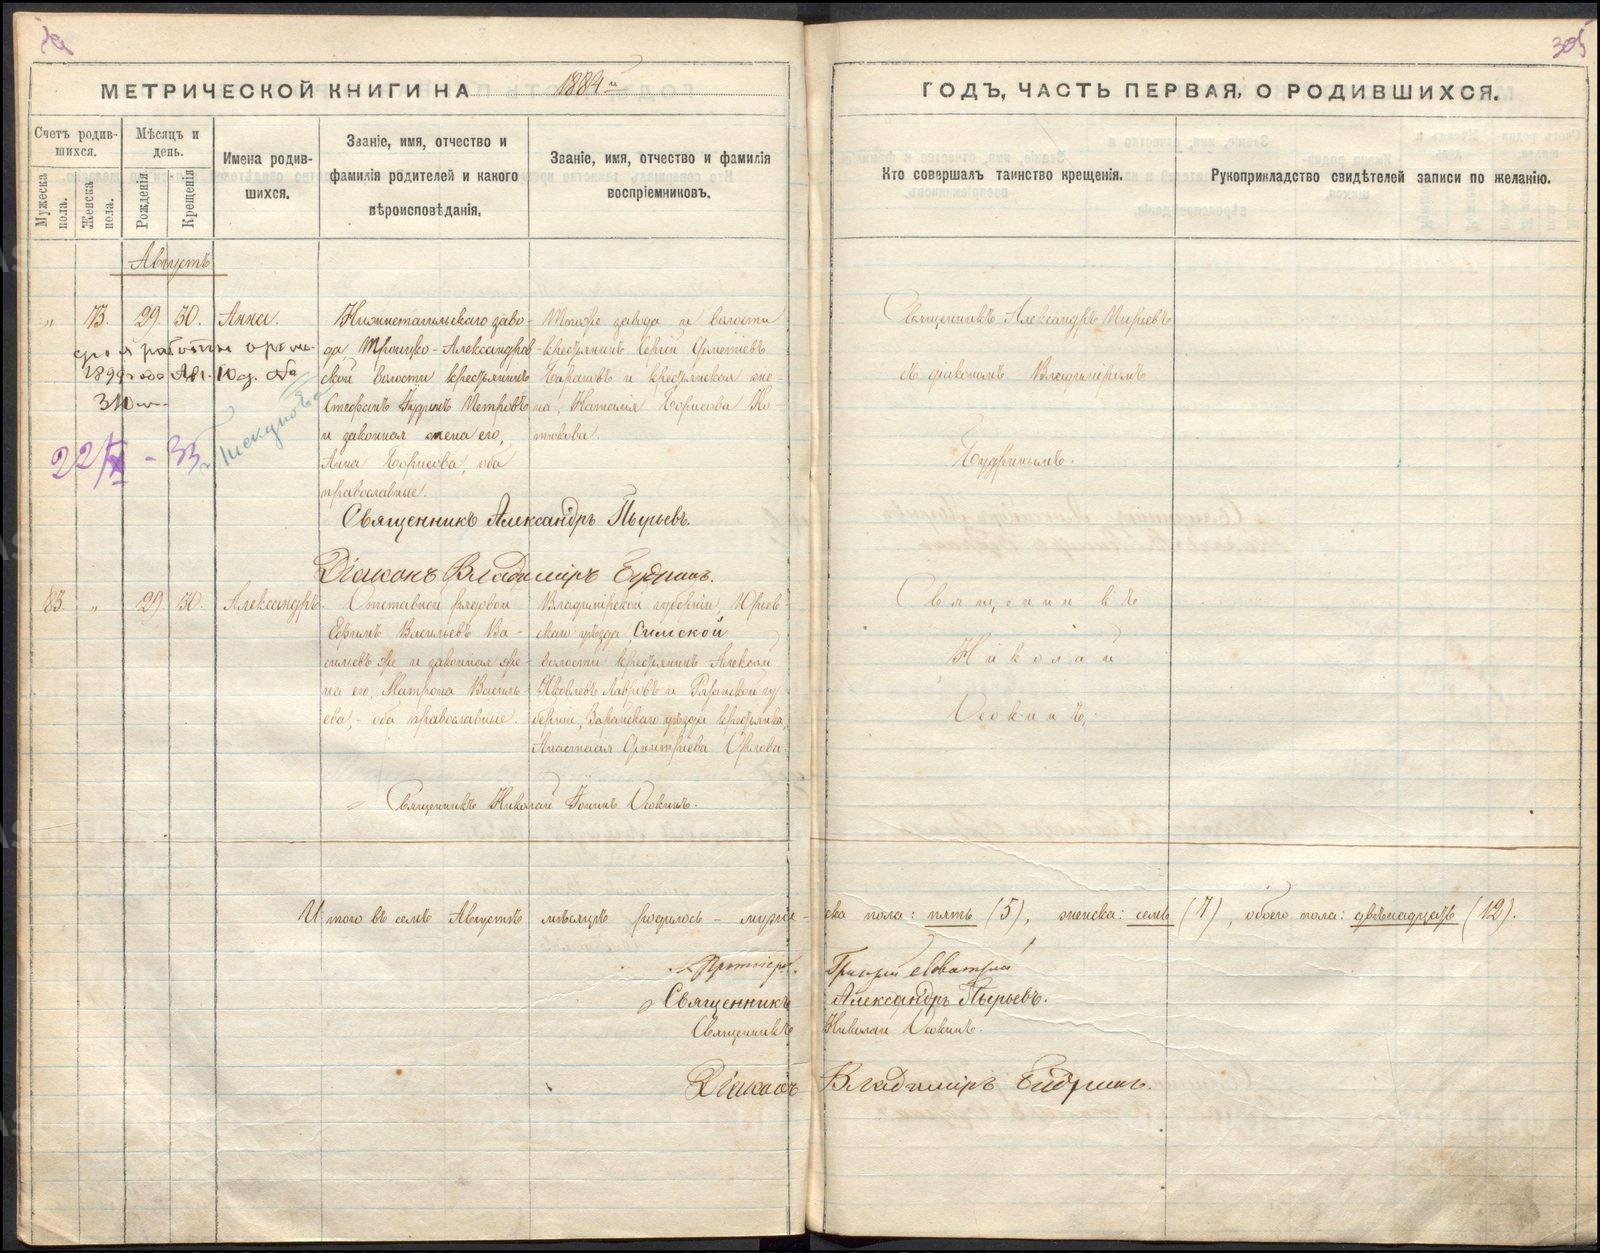 305
МЕТРИЧЕСКОЙ КНИГИ НА 1884й
ГОДЪ, ЧАСТЬ ПЕРВАЯ, О РОДИВШИХСЯ.
Счетъ родив-
шихся.
Мужеска
пола.
Женска
пола.
Мѣсяцъ и
день.
Рожденія
Крещенія
Имена родив-
шихся.
Званіе, имя, отчество и
фамилія родителей и какого
вѣроисповѣданія.
Званіе, имя, отчество и фамилія
воспріемниковъ.
Кто совершалъ таинство крещенія.
Рукоприкладство свидѣтелей записи по желанію.
Августъ
" 73. 29. 30. Анна.
1899 года Авг. 10 д.
310
22 - 33
Нижнетагильскаго заво-
да, Троицко-Александров
ской волости крестьянинъ
Стефанъ Петровъ
и законная жена его,
Анна Борисова, оба
православные.
Тогоже завода и волости
крестьянинъ Сергій
и крестьянская же-
на, Наталія Борисова Ко-
тюкова.
Священникъ Александръ Пырьевъ
съ діакономъ Владиміромъ
Будринымъ.
Священникъ Александръ Пырьевъ.
Діаконъ Владиміръ Будринъ.
83. " 29 30. Александръ.
Отставной рядовой
Васильевъ Ва-
сильевъ же и законная же-
на его, Матрона Василь-
ева, - оба православные.
Владимірской губерніи, Юрьев-
скаго уѣзда, Симской
волости крестьянинъ Алексѣй
Яковлевъ Лавровъ и Рязанской гу-
берніи, Зарайскаго уѣзда крестьянка
Анастасія Дмитріева Орлова.
Священникъ
Николай
Осокинъ.
Священникъ Николай Іоаннъ Осокинъ.
Итого въ семъ Августѣ мѣсяцѣ родилось - муже-ска пола: пять (5), женска: семь (7), обоего пола: двѣнадцать (12).
Протоіер. Григорій
Священникъ Александръ Пырьевъ.
Священникъ Николай Осокинъ.
Діаконъ Владиміръ Будринъ.